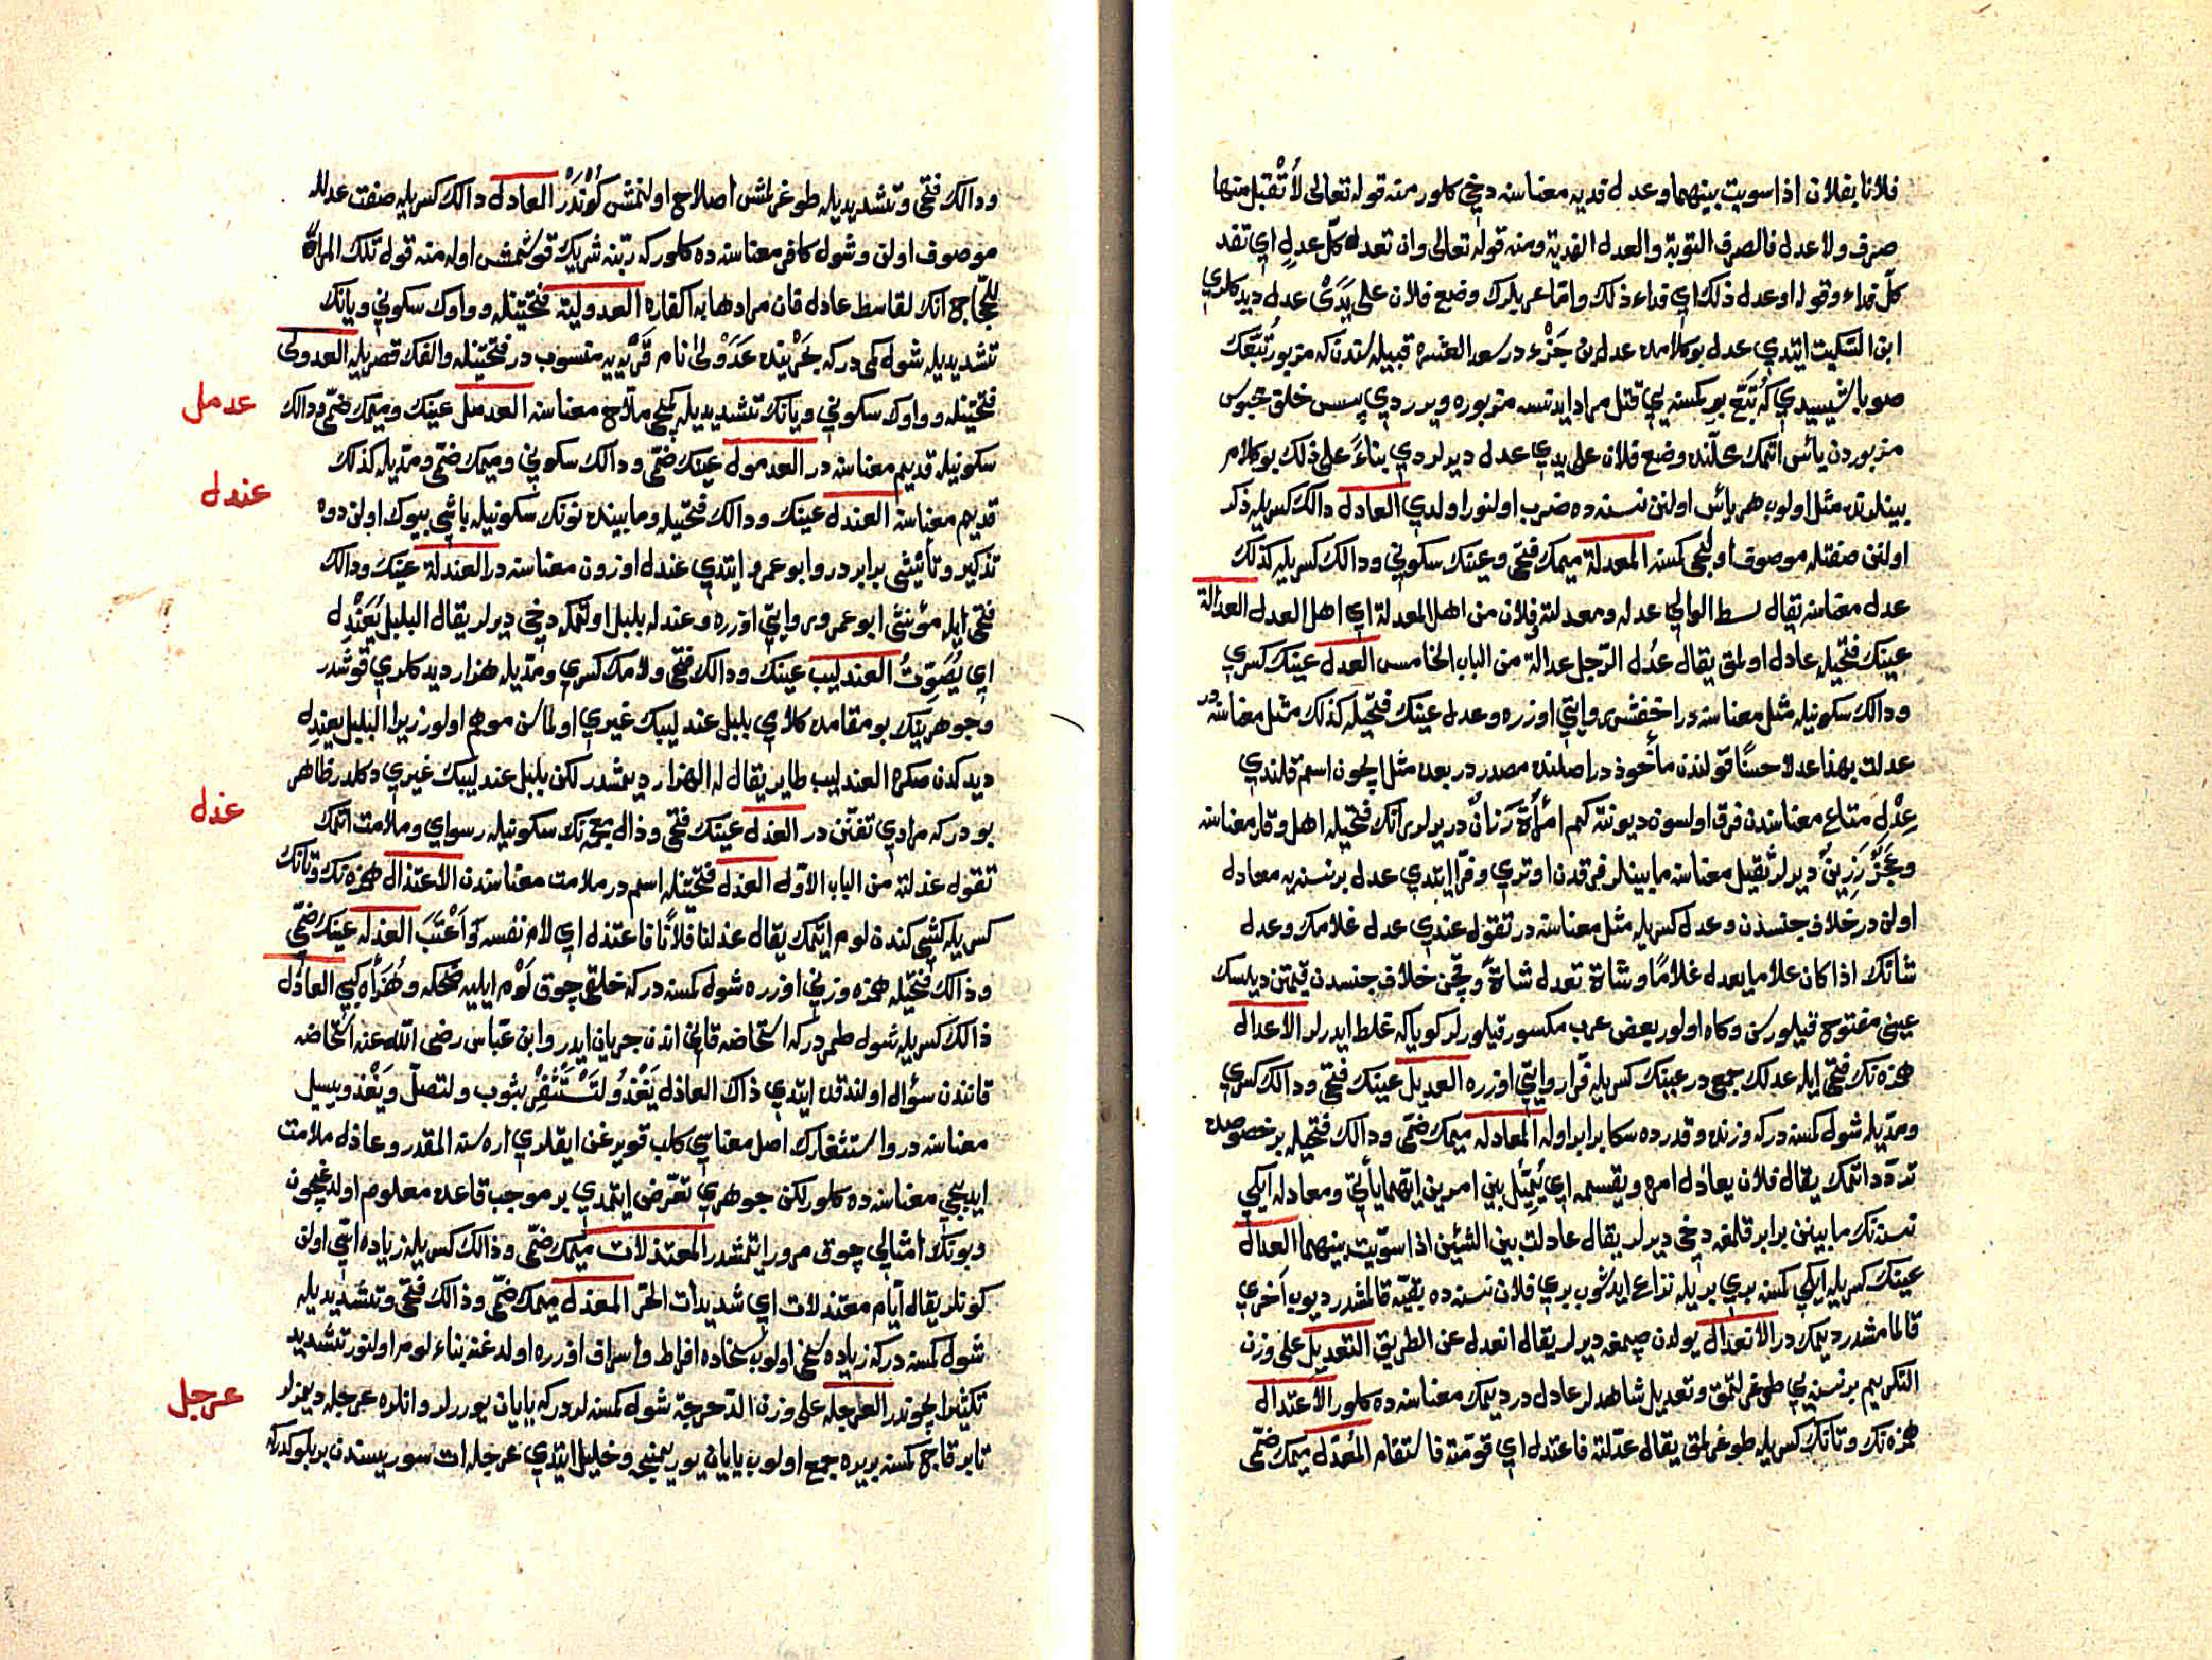 فلانا بفلان اذا سويت بينهما وعدل فديه معناسنه دخي كلور منه قوله تعالى لا تُقْبَل منها
صرف ولا عدل فالصرف التوبة والعدل الفدية ومنه قوله تعالى وان تعدل كلّ عدل اي تفد
كلّ فداء وقوله او عدل ذلك اي فداء ذلك واما عربلرك وضع فلان على يَدَيْ عدل ديدكلري
ابن السّكيت ايتدي عدل بو كلامده عدل بن جَزْء در سعد العشيره قبيله سندن كه مزبور تُبَّعك
صوباشيسيدي كه تُبَّع بر كمسنه يي قتل مراد ايدتسه مزبوره ويرردي پس خلق محبوس
مزبوردن يأس اتمك محلّنده وضع فلان على يدي عدل ديرلردي بناءً على ذلك بو كلام
بينلرنده مثل اولوب هر يأس اولنن نسنه ده ضرب اولنور اولدي العادل دالك كسريله ذكر
اولنن صفتله موصوف اولنجي كمسنه المعدلة ميمك فتحي وعينك سكوني ودالك كسريله كذلك
عدل معناسنه يقال بسط الوالي عدله ومعدلته وفلان من اهل المعدلة اي اهل العدل العدالة
عينك فتحيله عادل اولمق يقال عَدُل الرّجل عدالة من الباب الخامس العدل عينك كسري
ودالك سكونيله مثل معناسنه در اخفش روايتي اوزره وعدل عينك فتحيله كذلك مثل معناسنه در
عدلت بهذا عدلا حسنًا قولندن مأخوذ در اصلنده مصدر در بعده مثل ايچون اسم قلندي
عِدْلِ متاع معناسندن فرق اولسون ديو نته كيم امرأة رَزانٌ ديرلر رانك فتحيله اهل وقار معناسنه
وعَجَزٌ رَزِينٌ ديرلر ثقيل معناسنه مابينلر فرقدن اوتري وفرّا ايتدي عدل بر نسنه يه معادل
اولن در خلاف جنسدن وعدل كسريله مثل معناسنه در تقول عندي عدل غلامك وعدل
شاتك اذا كان غلاما يعدل غلامًا وشاة تعدل شاةً وچن خلاف جنسدن قيمتن ديلسك
عيني مفتوح قيلورسن وكاه اولور بعض عرب مكسور قيلورلر كويا كه غلط ايدرلر الاعدال
همزه نك فتحي ايله عدلك جمعي در عينك كسريله فرّا روايتي اوزره العديل عينك فتحي ودالك كسري
ومدّيله شول كمسنه در كه وزنده وقدرده سكا برابر اوله المعادله ميمك ضمّي ودالك فتحيله بر خصوصده
تردّد اتمك يقال فلان يعادل امره ويقسمه اي يُمَيِّل بين امرين ايّهما يأتي ومعادله ايكي
نسنه نك مابينن برابر قلمغه دخي ديرلر يقال عادلت بين الشيئين اذا سوّيت بينهما العدال
عينك كسريله ايكي كمسنه بري بريله نزاع ايدشوب بري فلان نسنه ده بقيّه قالمشدر ديوب آخري
قالمامشدر ديمك در الانعدال يولدن چيقمغه ديرلر يقال انعدل عن الطريق التعديل على وزن
التكريم بر نسنه يي طوغرلتمق وتعديل شاهدلر عادل در ديمك معناسنه ده كلور الاعتدال
همزه نك وتانك كسريله طوغرلمق يقال عدّلته فاعتدل اي قوّمته فاستقام المُعدَّل ميمك ضمّي
ودالك فتحي وتشديديله طوغرلمش اصلاح اولنمش كُونْدَرْ العادل دالك كسريله صفت عدلله
موصوف اولن وشول كافر معناسنه ده كلور كه ربّنه شريك قوشمش اوله منه قول تلك المرأة
للحجّاج انك لقاسط عادل فان مرادها به الكفاره العدوليّة فتحتينله وواوك سكوني ويانك
تشديديله شول كمي در كه بَحْرَيْنده عَدَوْلىٰ نام قَرْيه يه منسوب در فتحتينله والفك قصريله العدولي
فتحتينله وواوك سكوني ويانك تشديديله كمجي ملّاح معناسنه العدمل عينك وميمك ضمّي ودالك
سكونيله قديم معناسنه در العدمول عينك ضمّي ودالك سكوني وميمك ضمّي ومدّيله كذلك
قديم معناسنه العندل عينك ودالك فتحيله ومابينده نونك سكونيله باشي بيوك اولن دوه
تذكير وتأنيثي برابر در وابو عمرو ايتدي عندل اوزون معناسنه در العندلة عينك ودالك
فتحي ايله مؤنثي ابو عمرو روايتي اوزره وعندله بلبل اوتمكه دخي ديرلر يقال البلبل يُعَنْدِل
اي يُصَوِّتُ العندليب عينك ودالك فتحي ولامك كسري ومدّيله هزار ديدكلري قوشدر
وجوهرينك بو مقامده كلامي بلبل عندليبك غيري اولماسن موهم اولور زيرا البلبل يعندِل
ديدكدن صكره العندليب طاير يقال له الهزار ديمشدر لكن بلبل عندليبك غيري دكلدر ظاهر
بودر كه مرادي تفنّن در العذل عينك فتحي وذال معجمه نك سكونيله رسواي وملامت اتمك
تقول عذلته من الباب الاوّل العذل فتحتينله اسم در ملامت معناسندن الاعتذال همزه نك وتانك
كسريله كشي كندن لوم ايتمك يقال عذلنا فلانًا فاعتذل اي لام نفسه وَاَعْتَبَ العذله عينك ضمّي
وذالك فتحيله همزه وزني اوزره شول كمسنه در كه خلقي چوق لَوْم ايليه ضحكه وهُزَأه كبي العاذل
ذالك كسريله شول طمردر كه استحاضه قاني اندن جريان ايدر وابن عبّاس رضى الله عنه استحاضه
قانندن سؤال اولندقده ايتدي ذاك العاذل يَغْذُو لتَسْتَثْفِرْ بثوب ولتصلّ ويَغْذو يسيل
معناسنه در واستثفارك اصل معناسي كلب قويرغن ايقلري اره سنه المقدر وعاذل ملامت
ايديجي معناسنه ده كلور لكن جوهري تعرّض ايتمدي بر موجب قاعده معلوم اولدغيچون
وبونك امثالي چوق مرور ايتمشدر المعتذلات ميمك ضمّي وذالك كسريله زياده اسّي اولن
كونلر يقال ايّام معتذلات اي شديدات الحرّ المعذل ميمك ضمّي وذالك فتحي وتشديديله
شول كمسنه در كه زياده سخي اولوب سخاده افراط واسراف اوزره اولدغنه بناء لوم اولنور تشديد
تكثير ايچوندر العرجله على وزن الدّحرجة شول كمسنه لردر كه يايان يوررلر وانلره عرجله ديمزلر
تا بر قاج كمسنه بر يره جمع اولوب يايان يوريمينجه وخليل ايتدي عرجله ات سوريسندن بر بلوكدر كه
عدمل
عندل
عذل
عرجل